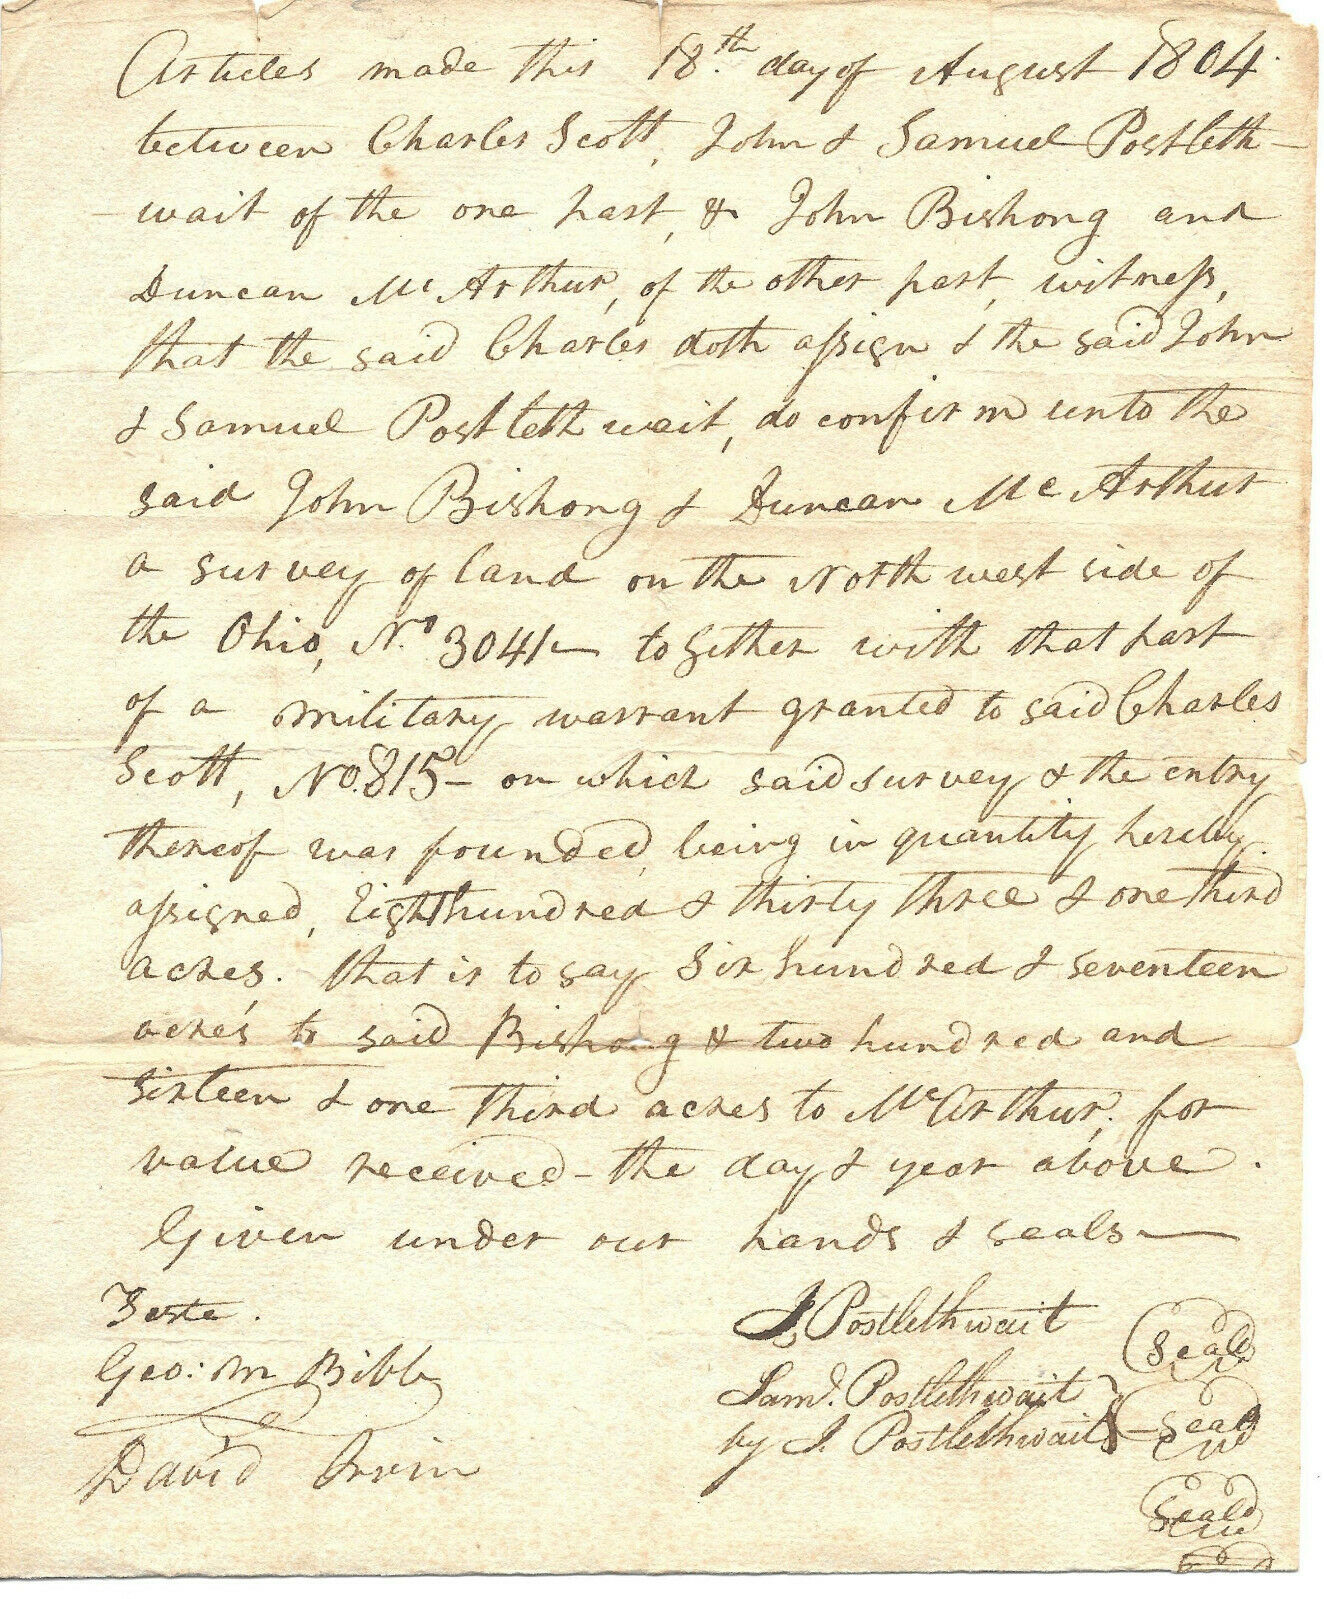 Articles made this 18.th day of August 1804.
between Charles Scott, John & Samuel Postleth-
-wait of the one part, & John Bishong and
Duncan McArthur, of the other part, witness,
that the said Charles doth assign & the said John
& Samuel Postlethwait, do confirm unto the
said John Bishong & Duncan McArthur
a survey of land on the North west side of
the Ohio, No. 3041— together with that part
of a military warrant granted to said Charles
Scott, No. 815— on which said survey & the entry
thereof was founded, being in quantity hereby
assigned, Eight hundred & thirty three & one third
acres. that is to say Six hundred & seventeen
acres, to said Bishong & two hundred and
sixteen & one third acres to McArthur, for
value received— the day & year above.
Given under our hands & seals—
Teste.
Geo: M Bibb
David Irvin
J. Postlethwait Seal
Saml. Postlethwait
by J. Postlethwait Seal
Seal